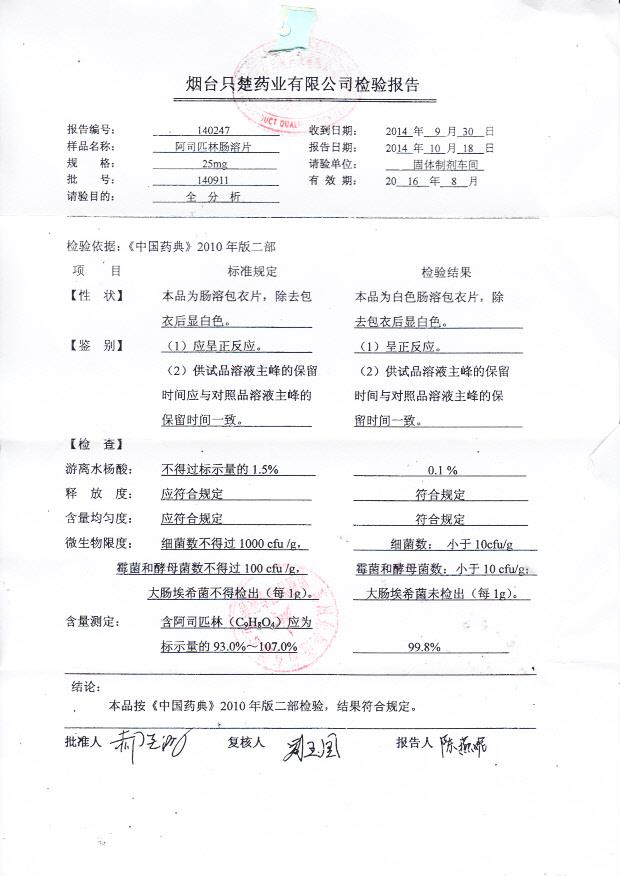 烟台只楚药业有限公司检验报告
UCT QUAL
报告编号： 140247 收到日期： 2014 年 9 月 30 日
样品名称： 阿司匹林肠溶片 报告日期： 2014 年 10 月 18 日
规 格： 25mg 请验单位： 固体制剂车间
批 号： 140911 有 效 期： 20 16 年 8 月
请验目的： 全 分 析
检验依据：《中国药典》2010 年版二部
项 目 标准规定 检验结果
【性 状】 本品为肠溶包衣片，除去包 本品为白色肠溶包衣片，除
衣后显白色。 去包衣后显白色。
【鉴 别】 （1）应呈正反应。 （1）呈正反应。
（2）供试品溶液主峰的保留 （2）供试品溶液主峰的保留
时间应与对照品溶液主峰的 时间与对照品溶液主峰的保
保留时间一致。 留时间一致。
【检 查】
游离水杨酸： 不得过标示量的 1.5% 0.1 %
释 放 度： 应符合规定 符合规定
含量均匀度： 应符合规定 符合规定
微生物限度： 细菌数不得过 1000 cfu /g， 细菌数： 小于 10cfu/g
霉菌和酵母菌数不得过 100 cfu /g， 霉菌和酵母菌数：小于 10 cfu/g；
大肠埃希菌不得检出（每 1g）。 大肠埃希菌未检出（每 1g）。
含量测定： 含阿司匹林（C₉H₈O₄）应为
标示量的 93.0%～107.0% 99.8%
结论：
本品按《中国药典》2010 年版二部检验，结果符合规定。
批准人 复核人 报告人